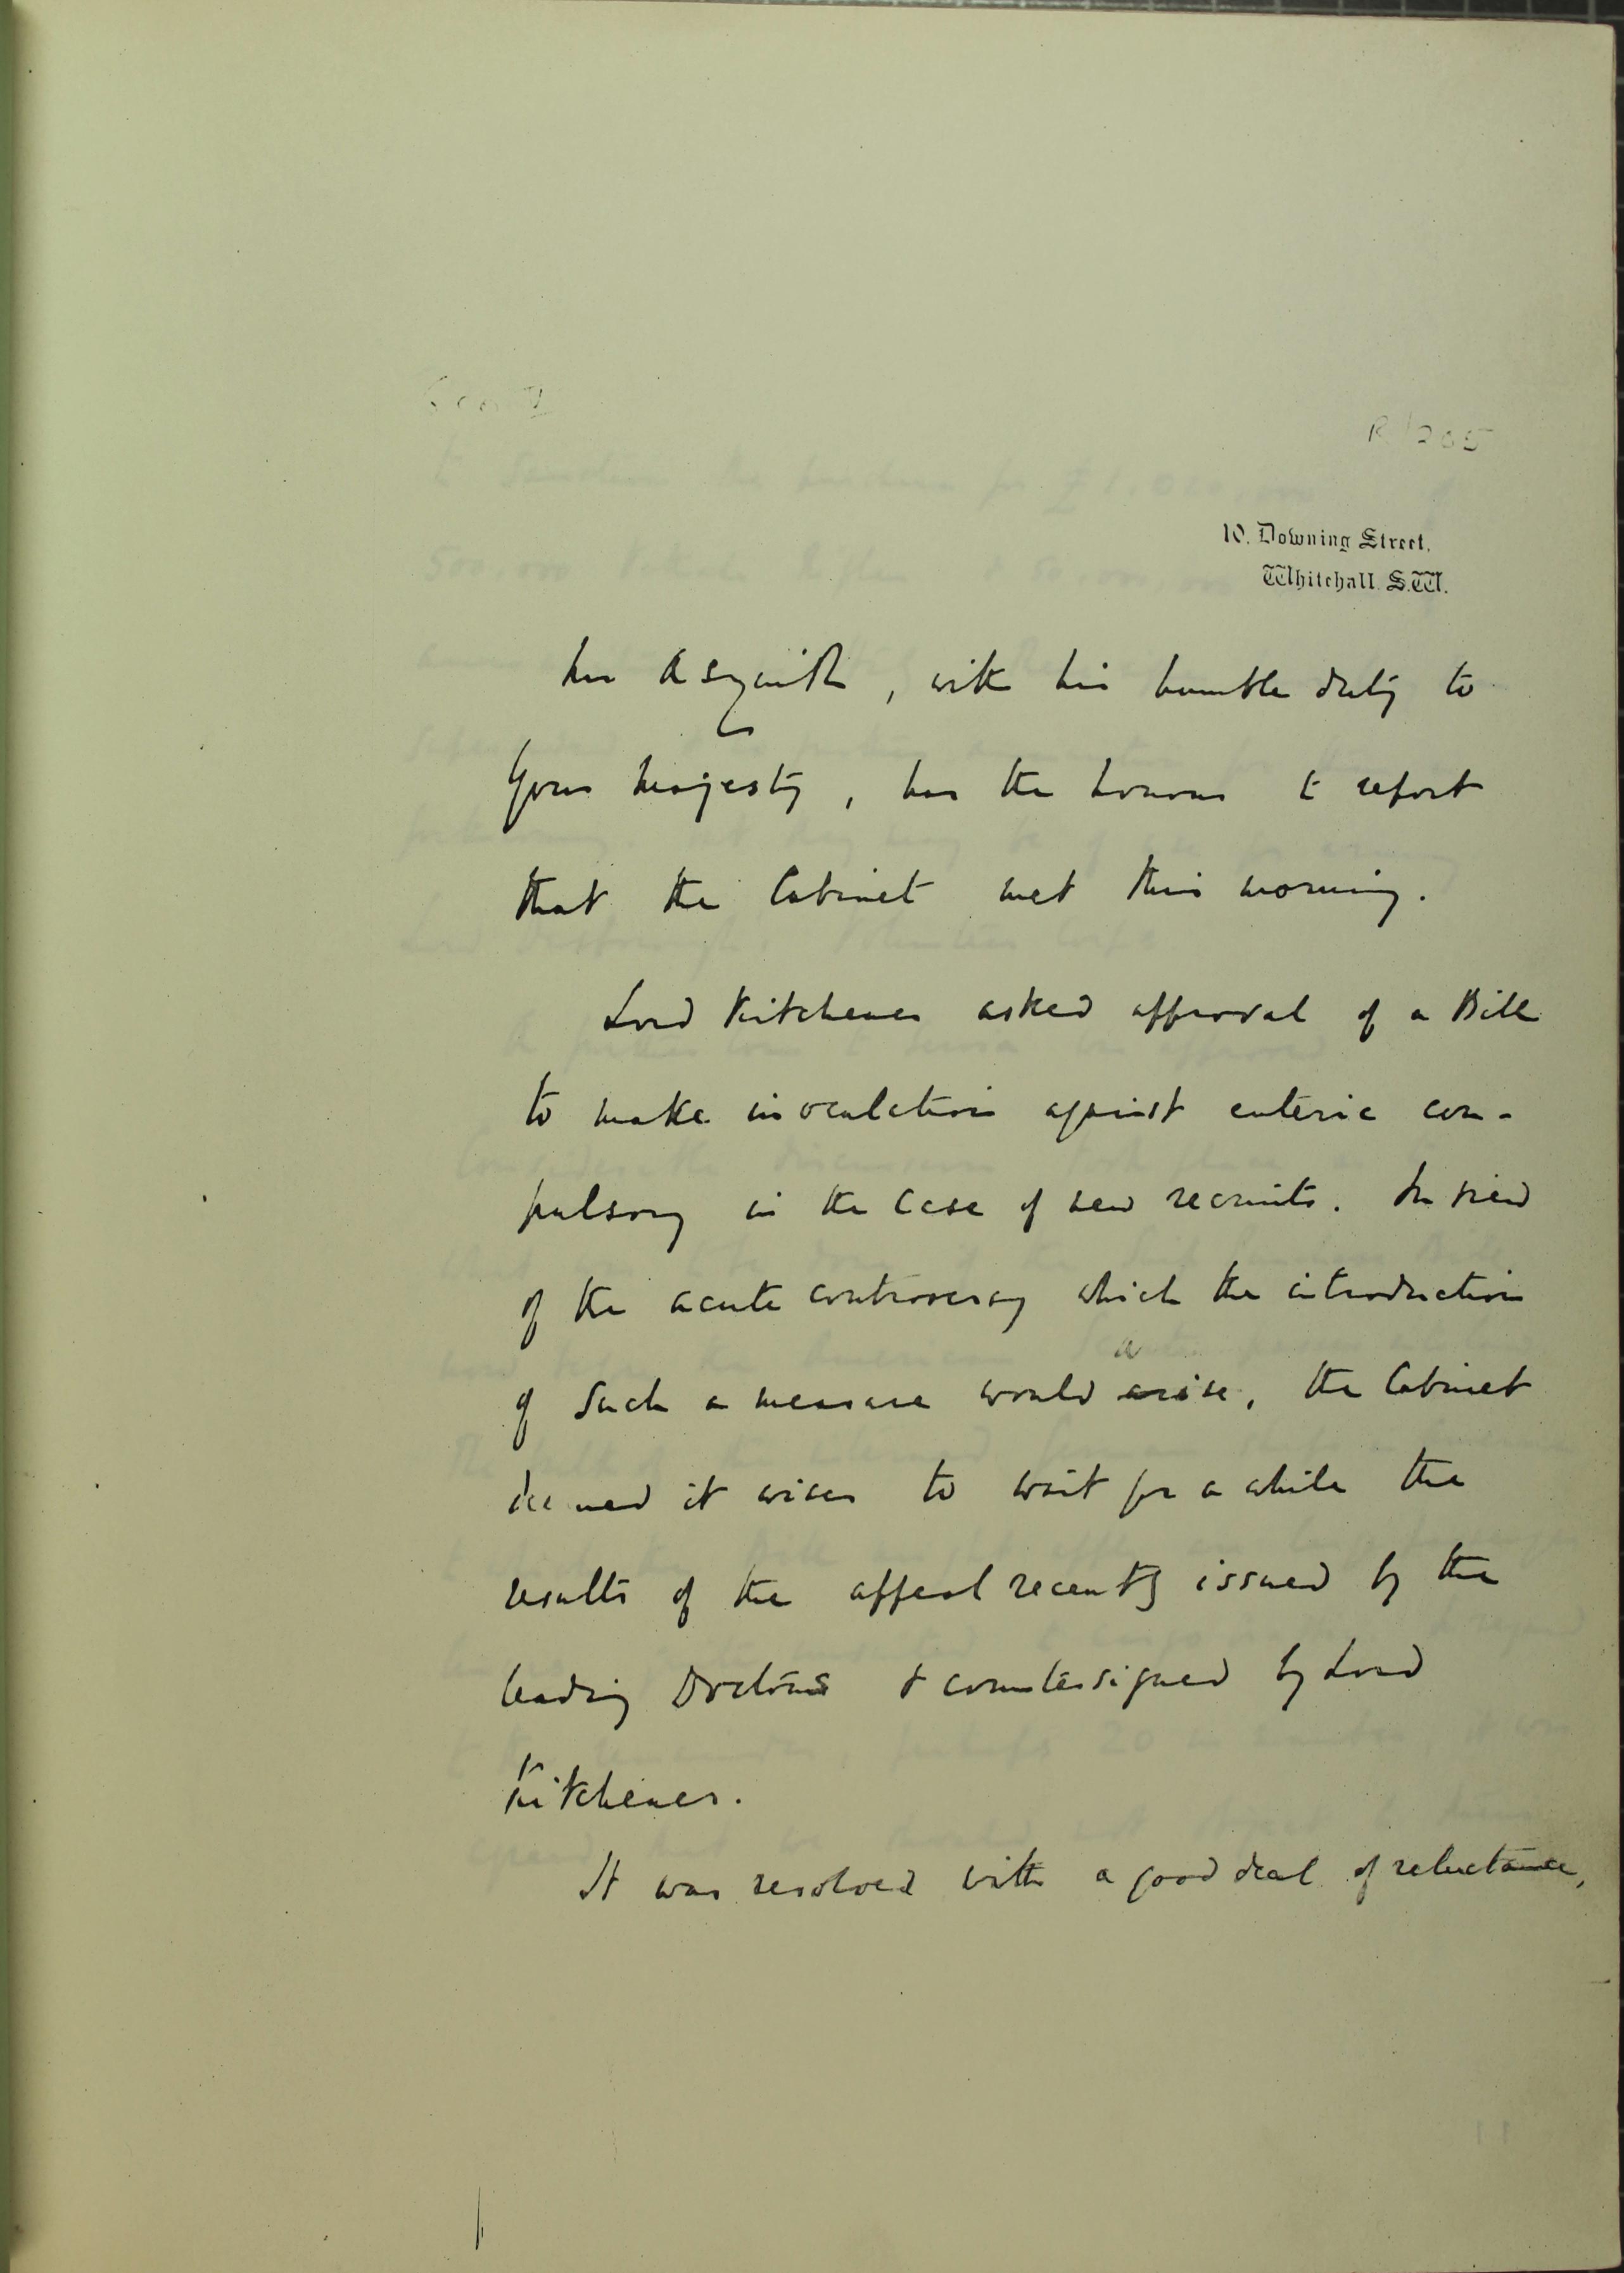 Geo V
R/205
10. Downing Street,
Whitehall. S.W.
Mr Asquith, with his humble duty to
Your Majesty, has the honour to report
that the Cabinet met this morning.
Lord Kitchener asked approval of a Bill
to make inoculation against enteric com-
pulsory in the case of new recruits. In view
of the acute controversy which the introduction
of such a measure would arise, the Cabinet
deemed it wiser to wait for a while the
results of the appeal recently issued by the
leading Doctors & countersigned by Lord
Kitchener.
It was resolved with a good deal of reluctance,